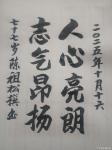 二〇二五年十月十六
人心亮朗
志气昂扬
七十七岁陈祖松撰书